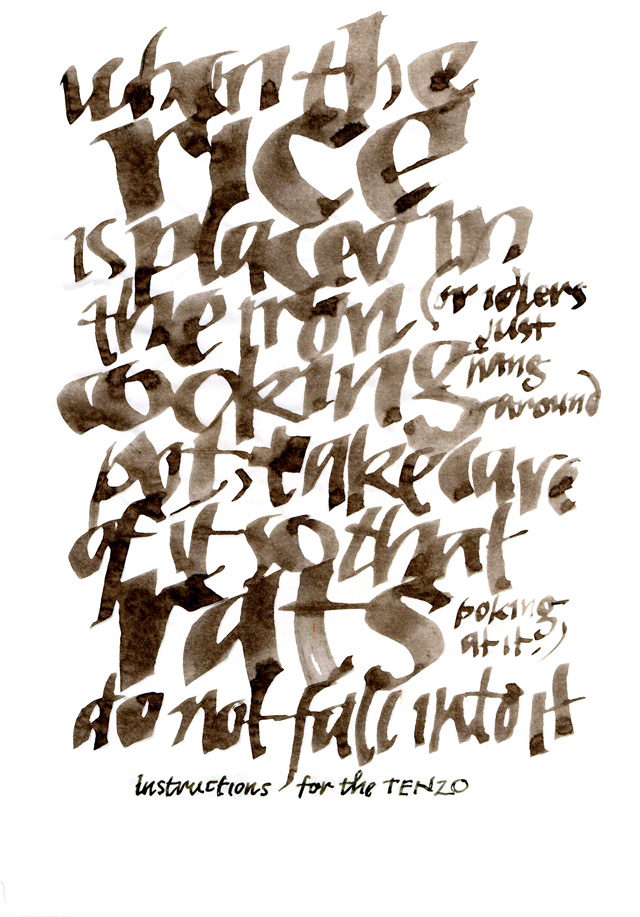 when the
rice
is placed in
the iron (or idlers
just
hang
cooking
around
pot, take care
of it so that
rats
poking
at it.)
do not fall into it
Instructions for the TENZO